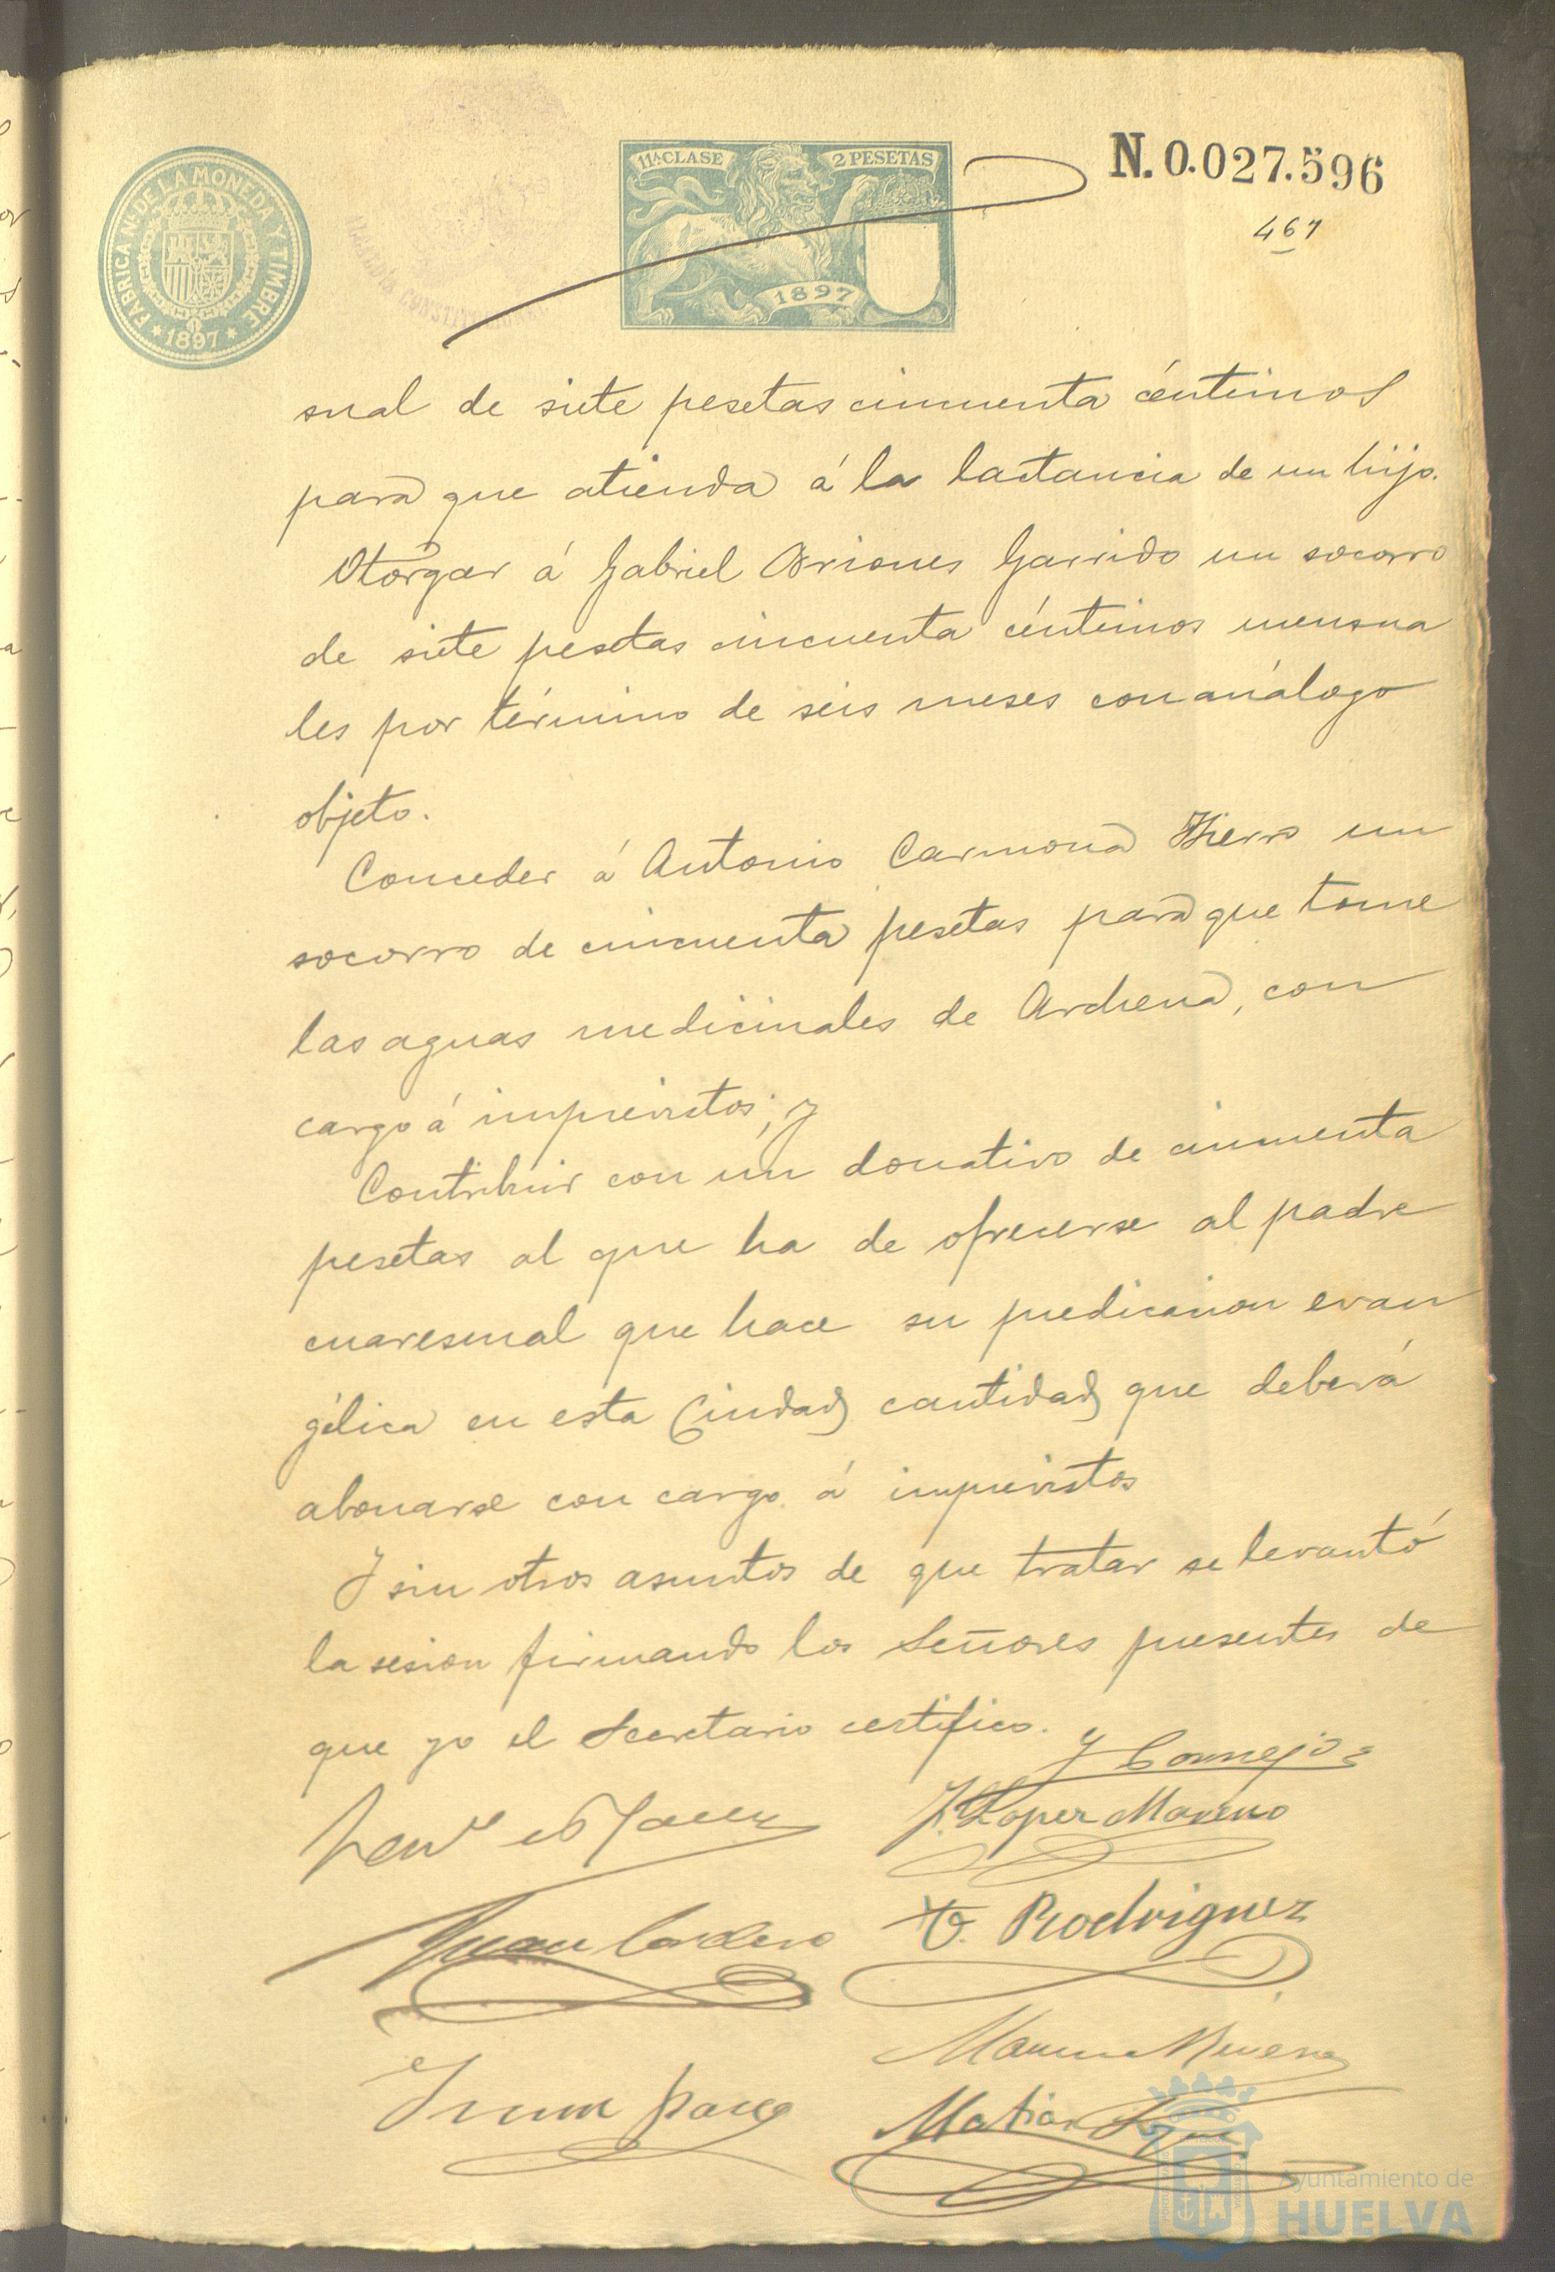 FÁBRICA Nl. DE LA MONEDA Y TIMBRE
* 1897 *
ALCALDÍA CONSTITUCIONAL
11ª CLASE 2 PESETAS
1897
N. 0.027.596
467
sual de siete pesetas cincuenta céntimos
para que atienda á la lactancia de un hijo.
Otorgar á Gabriel Briones Garrido un socorro
de siete pesetas cincuenta céntimos mensua
les por término de seis meses con análogo
objeto.
Conceder á Antonio Carmona Hierro un
socorro de cincuenta pesetas para que tome
las aguas medicinales de Archena, con
cargo á imprevistos; y
Contribuir con un donativo de cincuenta
pesetas al que ha de ofrecerse al padre
cuaresmal que hace su predicacion evan
gélica en esta Ciudad cantidad que deberá
abonarse con cargo á imprevistos
Y sin otros asuntos de que tratar se levantó
la sesion firmando los Señores presentes de
que yo el Secretario certifico.
Y Cornejo
J. Lopez Moreno
Juan Cordero
O. Rodriguez
Matias
Ayuntamiento de
HUELVA